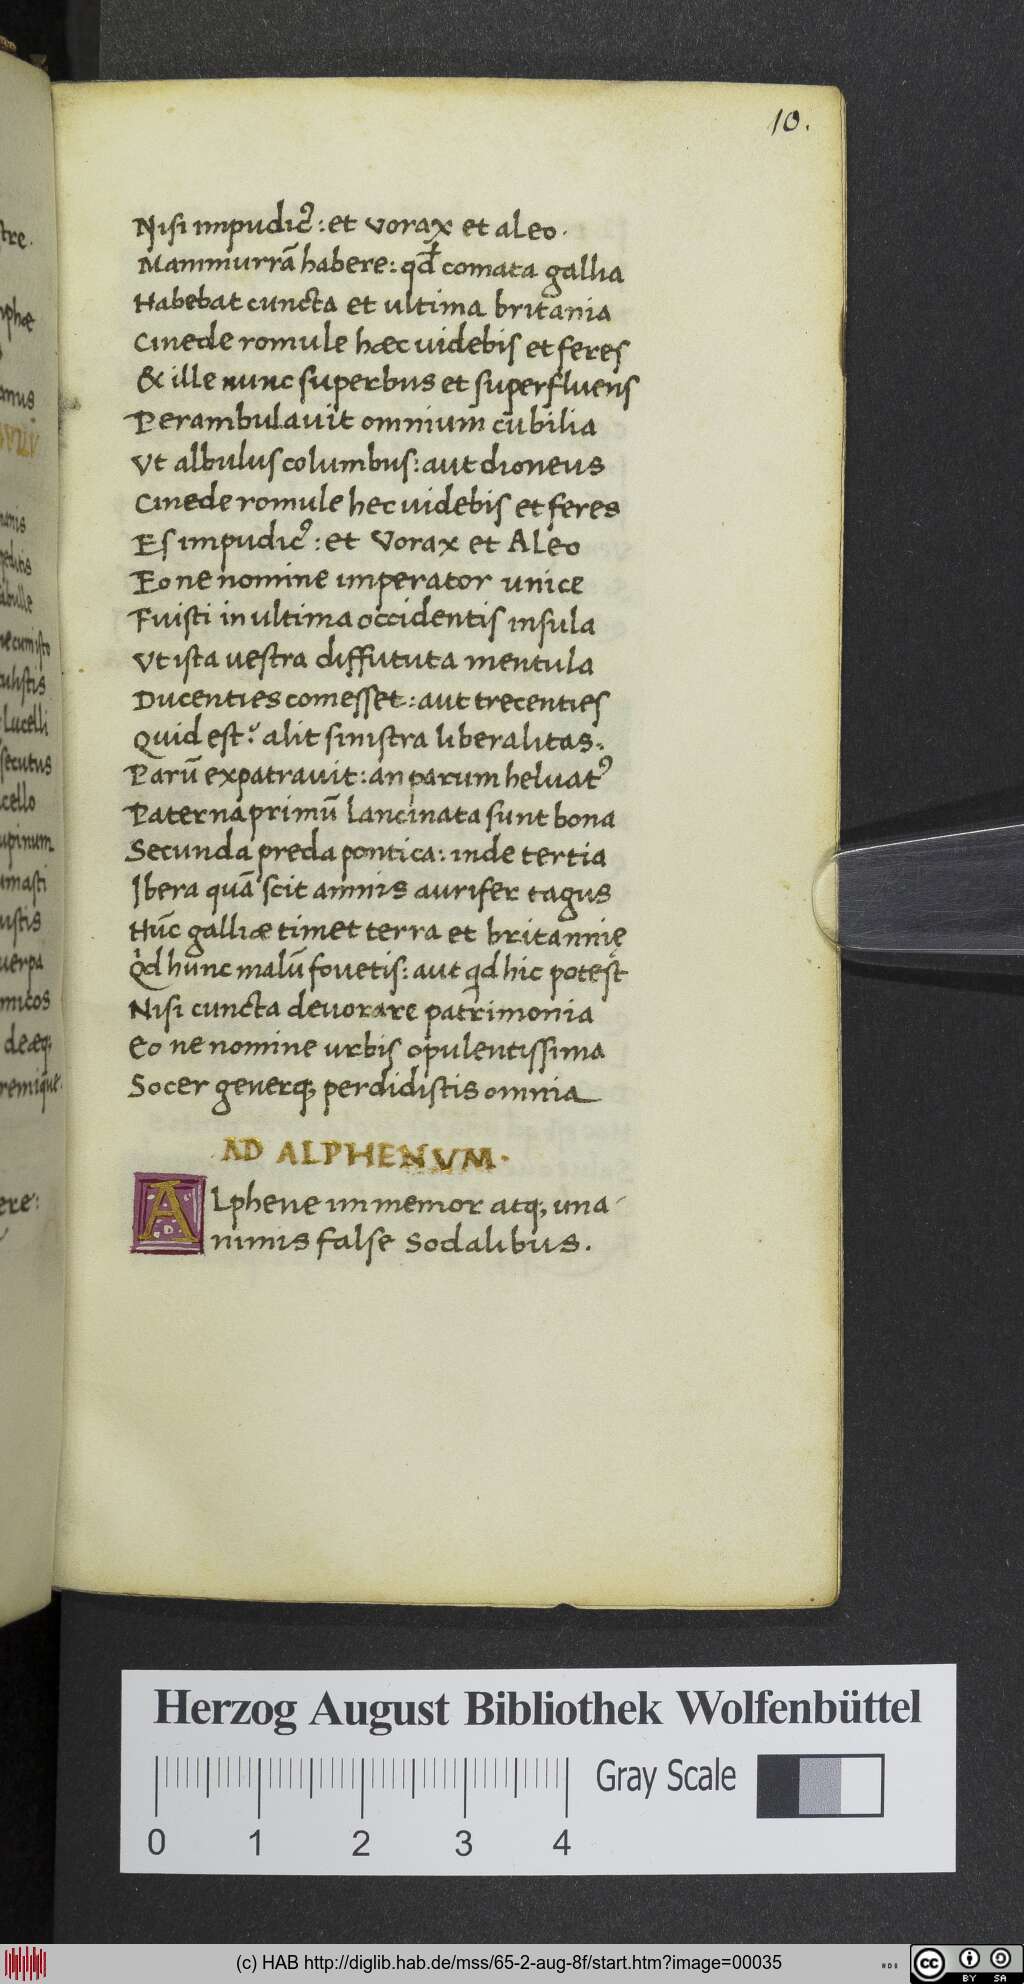 10.
Nisi impudicꝰ: et vorax et aleo.
Mammurrā habere: qd̄ comata gallia
Habebat cuncta et ultima britania
Cinede romule hæc uidebis et feres
& ille nunc superbus et superfluens
Perambulauit omnium cubilia
Vt albulus columbus: aut dioneus
Cinede romule hec uidebis et feres
Es impudicꝰ: et Vorax et Aleo
Eo ne nomine imperator unice
Fuisti in ultima occidentis insula
Vt ista uestra diffututa mentula
Ducenties comesset: aut trecenties
Quid est? alit sinistra liberalitas.
Parū expatrauit: an parum heluatꝰ
Paterna primū lancinata sunt bona
Secunda preda pontica: inde tertia
Ibera quā scit amnis aurifer tagus
Hūc galliæ timet terra et britannię
Qd hunc malū fouetis: aut qd hic potest
Nisi cuncta deuorare patrimonia
Eo ne nomine urbis opulentissima
Socer generq; perdidistis omnia
AD ALPHENVM.
ALphene immemor atq; una
nimis false Sodalibus.
Herzog August Bibliothek Wolfenbüttel
Gray Scale
0 1 2 3 4
(c) HAB http://diglib.hab.de/mss/65-2-aug-8f/start.htm?image=00035
cc BY SA